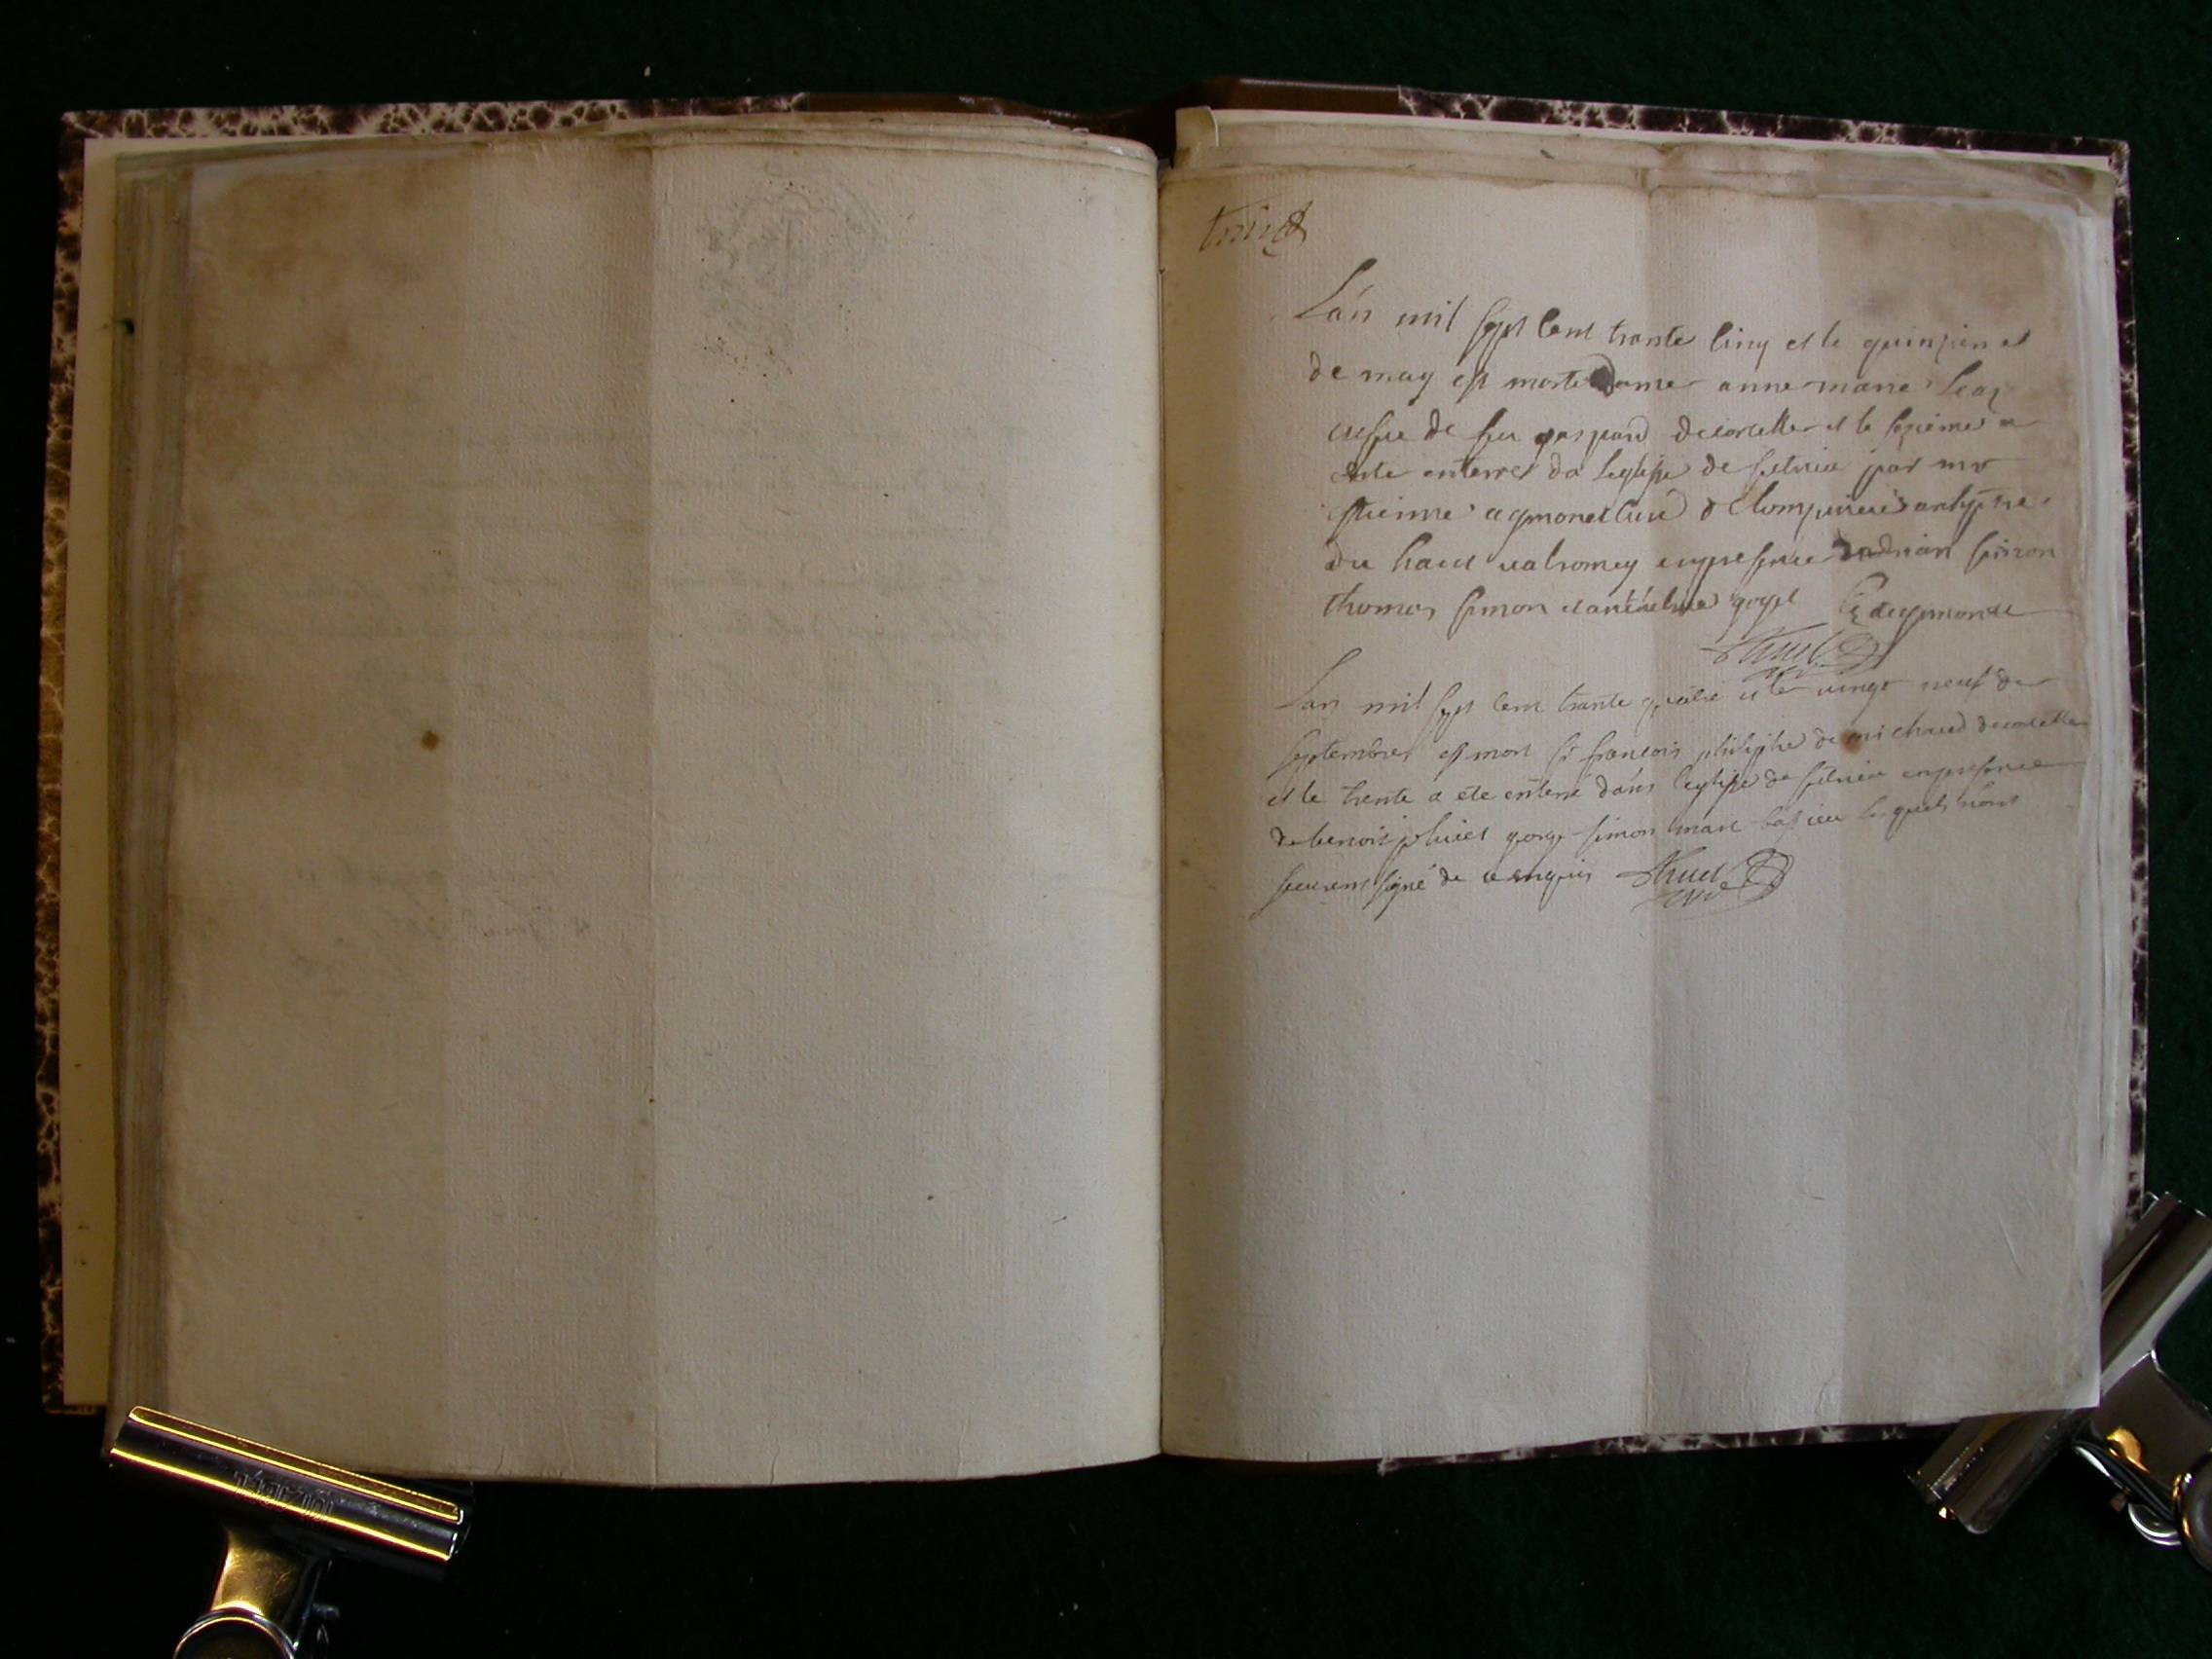 Lan mil sept cent trante cinq et le quinzien et
de may est morte dame anne marie
uesue de feu gaspard decorcelles et le sezieme a
este enterre da leglise de sutrieu par mr
etienne aymonet curé archiptre
du haut valromey enpresence adrian simon
thomas simon et antelme goyet aymonet
Lan mil sept cent trante quatre et le vingt neuf de
septembre est mort sr francois philiphe de michaud decorcelles
et le trente a ete enterré dans leglise de sutrieu enpresence
de benoist george simon marc lesquels nont
seu signé de ce enquis